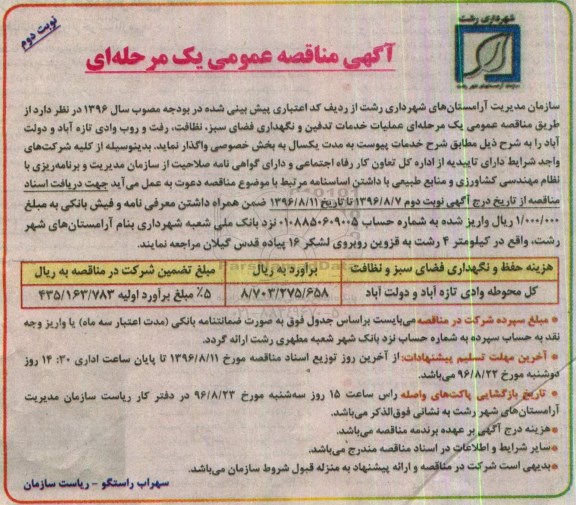 نوبت دوم
شهرداری رشت
آگهی مناقصه عمومی یک مرحله‌ای
سازمان مدیریت آرامستان‌های شهرداری رشت از ردیف کد اعتباری پیش بینی شده در بودجه مصوب سال ۱۳۹۶ در نظر دارد از
طریق مناقصه عمومی یک مرحله‌ای عملیات خدمات تدفین و نگهداری فضای سبز، نظافت، رفت و روب وادی تازه آباد و دولت
آباد را به شرح ذیل مطابق شرح خدمات پیوست به مدت یکسال به بخش خصوصی واگذار نماید. بدینوسیله از کلیه شرکت‌های
واجد شرایط دارای تاییدیه از اداره کل تعاون کار رفاه اجتماعی و دارای گواهی نامه صلاحیت از سازمان مدیریت و برنامه‌ریزی با
نظام مهندسی کشاورزی و منابع طبیعی با داشتن اساسنامه مرتبط با موضوع مناقصه دعوت به عمل می‌آید جهت دریافت اسناد
مناقصه از تاریخ درج آگهی نوبت دوم ۱۳۹۶/۸/۷ تا تاریخ ۱۳۹۶/۸/۱۱ ضمن همراه داشتن معرفی نامه و فیش بانکی به مبلغ
۱/۰۰۰/۰۰۰ ریال واریز شده به شماره حساب ۰۱۰۸۸۵۰۶۰۹۰۰۵ نزد بانک ملی شعبه شهرداری بنام آرامستان‌های شهر
رشت، واقع در کیلومتر ۴ رشت به قزوین روبروی لشکر ۱۶ پیاده قدس گیلان مراجعه نمایند.
هزینه حفظ و نگهداری فضای سبز و نظافت برآورد به ریال مبلغ تضمین شرکت در مناقصه به ریال
کل محوطه وادی تازه آباد و دولت آباد ۸/۷۰۳/۲۷۵/۶۵۸ ۵٪ مبلغ برآورد اولیه ۴۳۵/۱۶۳/۷۸۳
• مبلغ سپرده شرکت در مناقصه می‌بایست براساس جدول فوق به صورت ضمانتنامه بانکی (مدت اعتبار سه ماه) یا واریز وجه
نقد به حساب سپرده به شماره حساب نزد بانک شهر شعبه مطهری رشت ارائه گردد.
• آخرین مهلت تسلیم پیشنهادات: از آخرین روز توزیع اسناد مناقصه مورخ ۱۳۹۶/۸/۱۱ تا پایان ساعت اداری ۱۴:۳۰ روز
دوشنبه مورخ ۹۶/۸/۲۲ می‌باشد.
• تاریخ بازگشایی پاکت‌های واصله راس ساعت ۱۵ روز سه‌شنبه مورخ ۹۶/۸/۲۳ در دفتر کار ریاست سازمان مدیریت
آرامستان‌های شهر رشت به نشانی فوق‌الذکر می‌باشد.
• هزینه درج آگهی بر عهده برنده مناقصه می‌باشد.
• سایر شرایط و اطلاعات در اسناد مناقصه مندرج می‌باشد.
• بدیهی است شرکت در مناقصه و ارائه پیشنهاد به منزله قبول شروط سازمان می‌باشد.
سهراب راستگو - ریاست سازمان